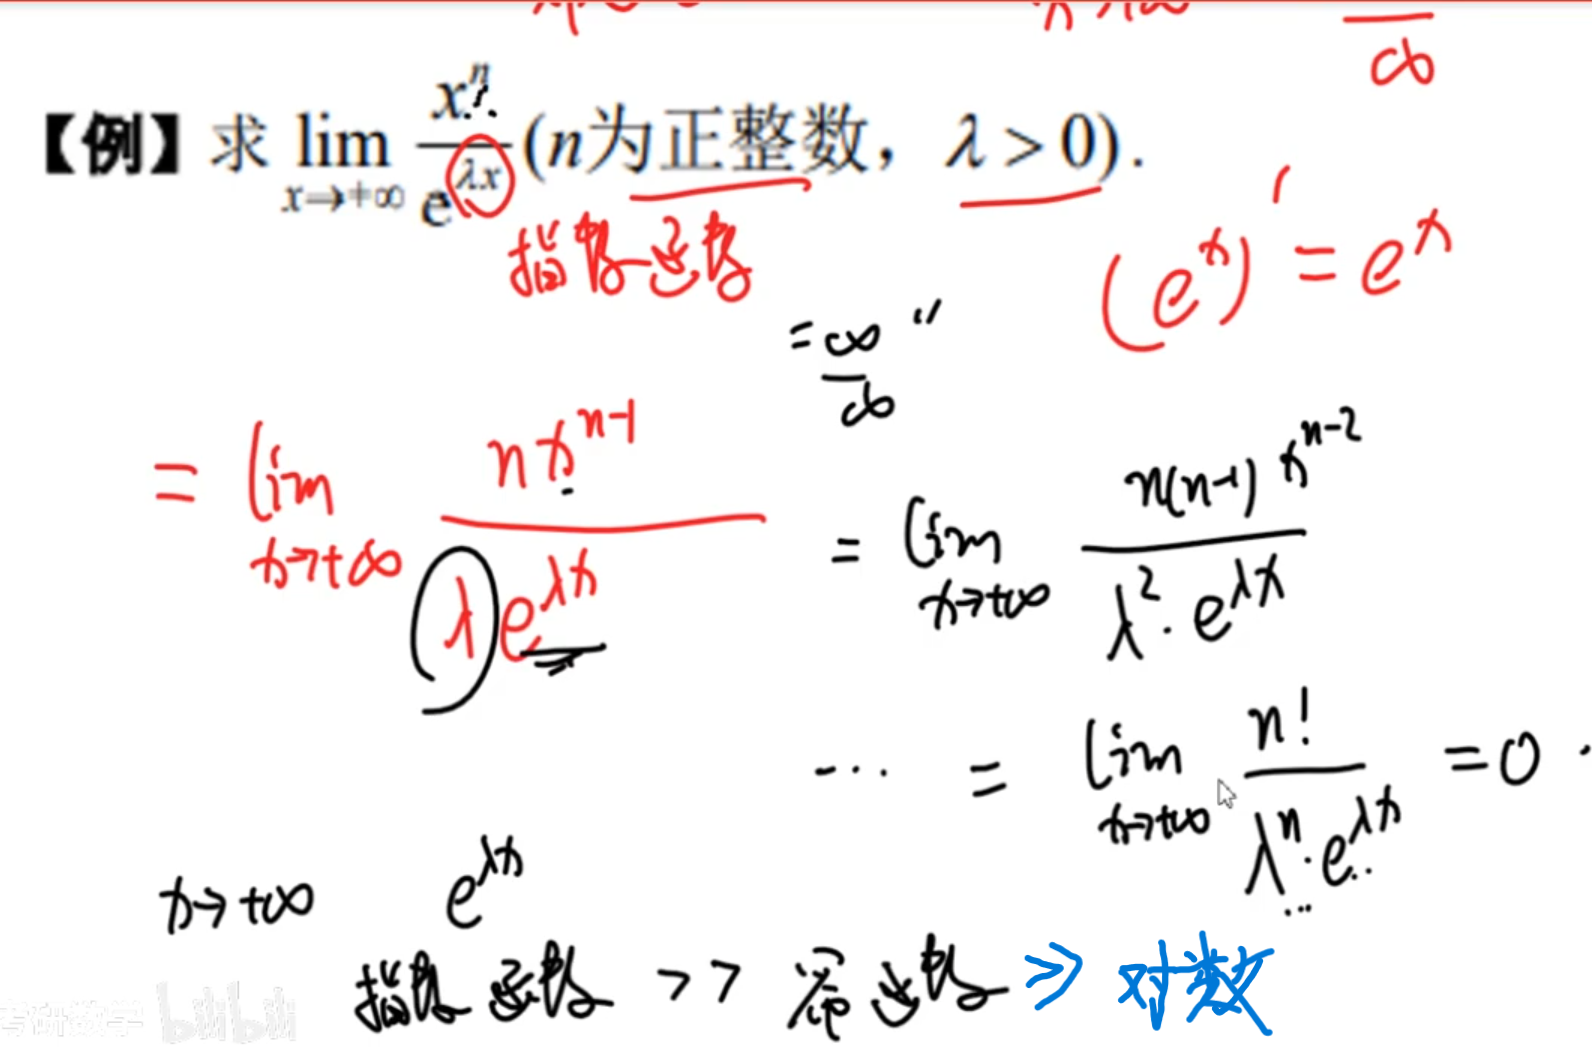 【例】求 lim x→+∞ xⁿ / e^{λx} (n为正整数，λ > 0).
指数函数
(e^x)' = e^x
= ∞/∞ "
= lim x→+∞ n x^{n-1} / λ e^{λx}
= lim x→+∞ n(n-1) x^{n-2} / λ² · e^{λx}
··· = lim x→+∞ n! / λⁿ · e^{λx} = 0 .
x→+∞ e^{λx}
指数函数 >> 幂函数 >> 对数
考研数学 bilibili